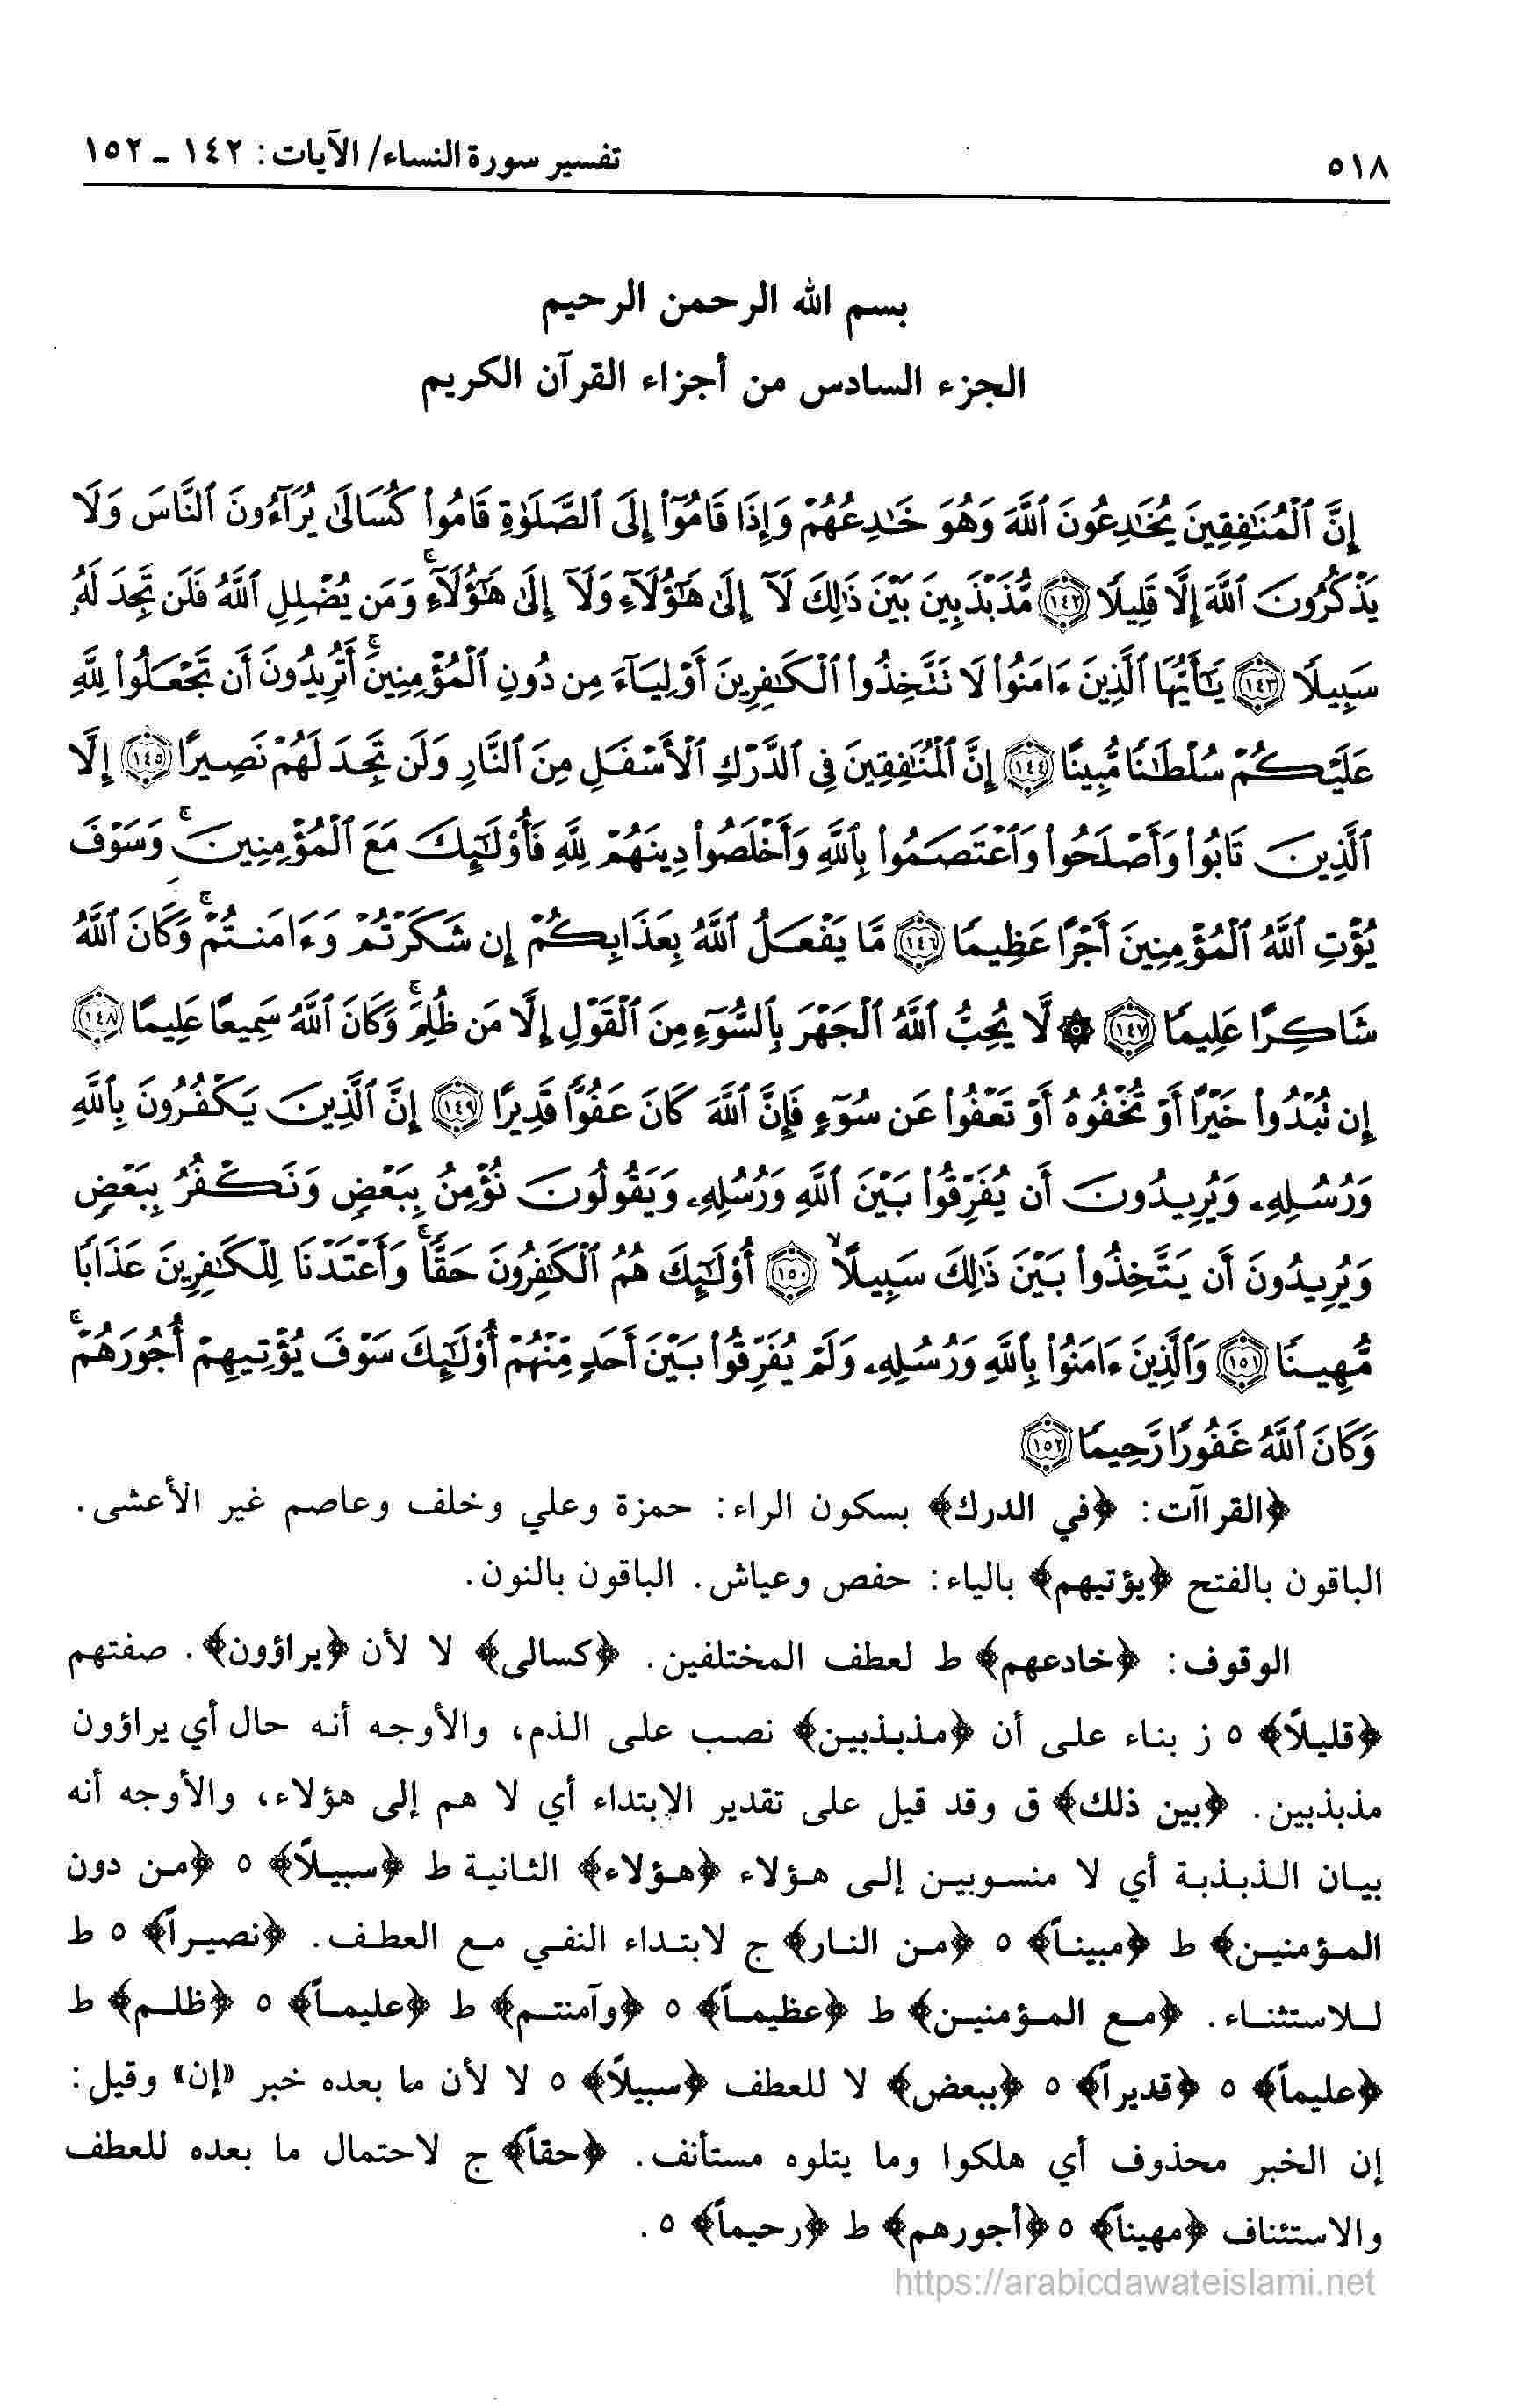 ٥١٨ تفسير سورة النساء/ الآيات: ١٤٢ ـ ١٥٢
بسم الله الرحمن الرحيم
الجزء السادس من أجزاء القرآن الكريم
إِنَّ ٱلْمُنَٰفِقِينَ يُخَٰدِعُونَ ٱللَّهَ وَهُوَ خَٰدِعُهُمْ وَإِذَا قَامُوٓا۟ إِلَى ٱلصَّلَوٰةِ قَامُوا۟ كُسَالَىٰ يُرَآءُونَ ٱلنَّاسَ وَلَا
يَذْكُرُونَ ٱللَّهَ إِلَّا قَلِيلًا ﴿١٤٢﴾ مُّذَبْذَبِينَ بَيْنَ ذَٰلِكَ لَآ إِلَىٰ هَٰٓؤُلَآءِ وَلَآ إِلَىٰ هَٰٓؤُلَآءِ ۚ وَمَن يُضْلِلِ ٱللَّهُ فَلَن تَجِدَ لَهُۥ
سَبِيلًا ﴿١٤٣﴾ يَٰٓأَيُّهَا ٱلَّذِينَ ءَامَنُوا۟ لَا تَتَّخِذُوا۟ ٱلْكَٰفِرِينَ أَوْلِيَآءَ مِن دُونِ ٱلْمُؤْمِنِينَ ۚ أَتُرِيدُونَ أَن تَجْعَلُوا۟ لِلَّهِ
عَلَيْكُمْ سُلْطَٰنًا مُّبِينًا ﴿١٤٤﴾ إِنَّ ٱلْمُنَٰفِقِينَ فِى ٱلدَّرْكِ ٱلْأَسْفَلِ مِنَ ٱلنَّارِ وَلَن تَجِدَ لَهُمْ نَصِيرًا ﴿١٤٥﴾ إِلَّا
ٱلَّذِينَ تَابُوا۟ وَأَصْلَحُوا۟ وَٱعْتَصَمُوا۟ بِٱللَّهِ وَأَخْلَصُوا۟ دِينَهُمْ لِلَّهِ فَأُو۟لَٰٓئِكَ مَعَ ٱلْمُؤْمِنِينَ ۚ وَسَوْفَ
يُؤْتِ ٱللَّهُ ٱلْمُؤْمِنِينَ أَجْرًا عَظِيمًا ﴿١٤٦﴾ مَّا يَفْعَلُ ٱللَّهُ بِعَذَابِكُمْ إِن شَكَرْتُمْ وَءَامَنتُمْ ۚ وَكَانَ ٱللَّهُ
شَاكِرًا عَلِيمًا ﴿١٤٧﴾ ۞ لَّا يُحِبُّ ٱللَّهُ ٱلْجَهْرَ بِٱلسُّوٓءِ مِنَ ٱلْقَوْلِ إِلَّا مَن ظُلِمَ ۚ وَكَانَ ٱللَّهُ سَمِيعًا عَلِيمًا ﴿١٤٨﴾
إِن تُبْدُوا۟ خَيْرًا أَوْ تُخْفُوهُ أَوْ تَعْفُوا۟ عَن سُوٓءٍ فَإِنَّ ٱللَّهَ كَانَ عَفُوًّا قَدِيرًا ﴿١٤٩﴾ إِنَّ ٱلَّذِينَ يَكْفُرُونَ بِٱللَّهِ
وَرُسُلِهِۦ وَيُرِيدُونَ أَن يُفَرِّقُوا۟ بَيْنَ ٱللَّهِ وَرُسُلِهِۦ وَيَقُولُونَ نُؤْمِنُ بِبَعْضٍ وَنَكْفُرُ بِبَعْضٍ
وَيُرِيدُونَ أَن يَتَّخِذُوا۟ بَيْنَ ذَٰلِكَ سَبِيلًا ۙ ﴿١٥٠﴾ أُو۟لَٰٓئِكَ هُمُ ٱلْكَٰفِرُونَ حَقًّا ۚ وَأَعْتَدْنَا لِلْكَٰفِرِينَ عَذَابًا
مُّهِينًا ﴿١٥١﴾ وَٱلَّذِينَ ءَامَنُوا۟ بِٱللَّهِ وَرُسُلِهِۦ وَلَمْ يُفَرِّقُوا۟ بَيْنَ أَحَدٍ مِّنْهُمْ أُو۟لَٰٓئِكَ سَوْفَ يُؤْتِيهِمْ أُجُورَهُمْ ۚ
وَكَانَ ٱللَّهُ غَفُورًا رَّحِيمًا ﴿١٥٢﴾
﴿القراآت: ﴿في الدرك﴾ بسكون الراء: حمزة وعلي وخلف وعاصم غير الأعشى.
الباقون بالفتح ﴿يؤتيهم﴾ بالياء: حفص وعياش. الباقون بالنون.
الوقوف: ﴿خادعهم﴾ ط لعطف المختلفين. ﴿كسالى﴾ لا لأن ﴿يراؤون﴾. صفتهم
﴿قليلاً﴾ ٥ ز بناء على أن ﴿مذبذبين﴾ نصب على الذم، والأوجه أنه حال أي يراؤون
مذبذبين. ﴿بين ذلك﴾ ق وقد قيل على تقدير الإبتداء أي لا هم إلى هؤلاء، والأوجه أنه
بيان الذبذبة أي لا منسوبين إلى هؤلاء ﴿هؤلاء﴾ الثانية ط ﴿سبيلاً﴾ ٥ ﴿من دون
المؤمنين﴾ ط ﴿مبيناً﴾ ٥ ﴿من النار﴾ ج لابتداء النفي مع العطف. ﴿نصيراً﴾ ٥ ط
للاستثناء. ﴿مع المؤمنين﴾ ط ﴿عظيماً﴾ ٥ ﴿وآمنتم﴾ ط ﴿عليماً﴾ ٥ ﴿ظلم﴾ ط
﴿عليماً﴾ ٥ ﴿قديراً﴾ ٥ ﴿ببعض﴾ لا للعطف ﴿سبيلاً﴾ ٥ لا لأن ما بعده خبر «إن» وقيل:
إن الخبر محذوف أي هلكوا وما يتلوه مستأنف. ﴿حقاً﴾ ج لاحتمال ما بعده للعطف
والاستئناف ﴿مهيناً﴾ ٥ ﴿أجورهم﴾ ط ﴿رحيماً﴾ ٥.
https://arabicdawateislami.net